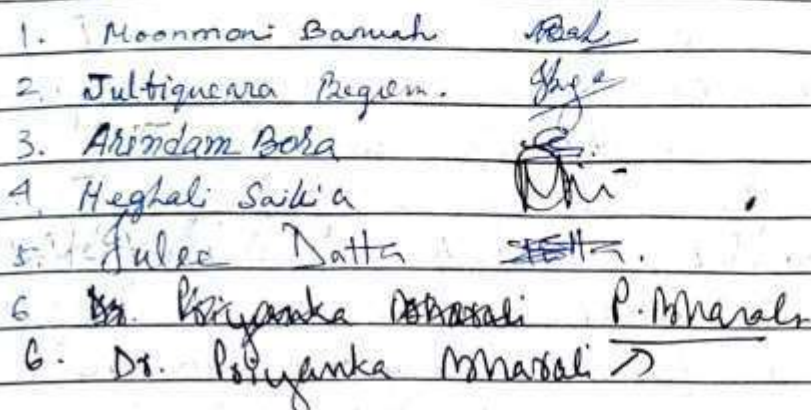 1. Moonmoni Baruah
2. Jultiqueara Begum.
3. Arindam Bora
4 Meghali Saikia
5. Julee Datta
6 Dr. Priyanka Bharali P. Bharali
6. Dr. Priyanka Bharali